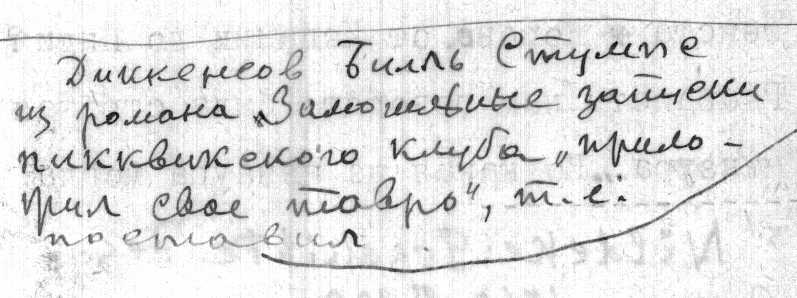 Диккенсов Билль Стумпс
из романа „Замогильные записки
пикквикского клуба „прило-
жил свое тавро“, т.е.
поставил